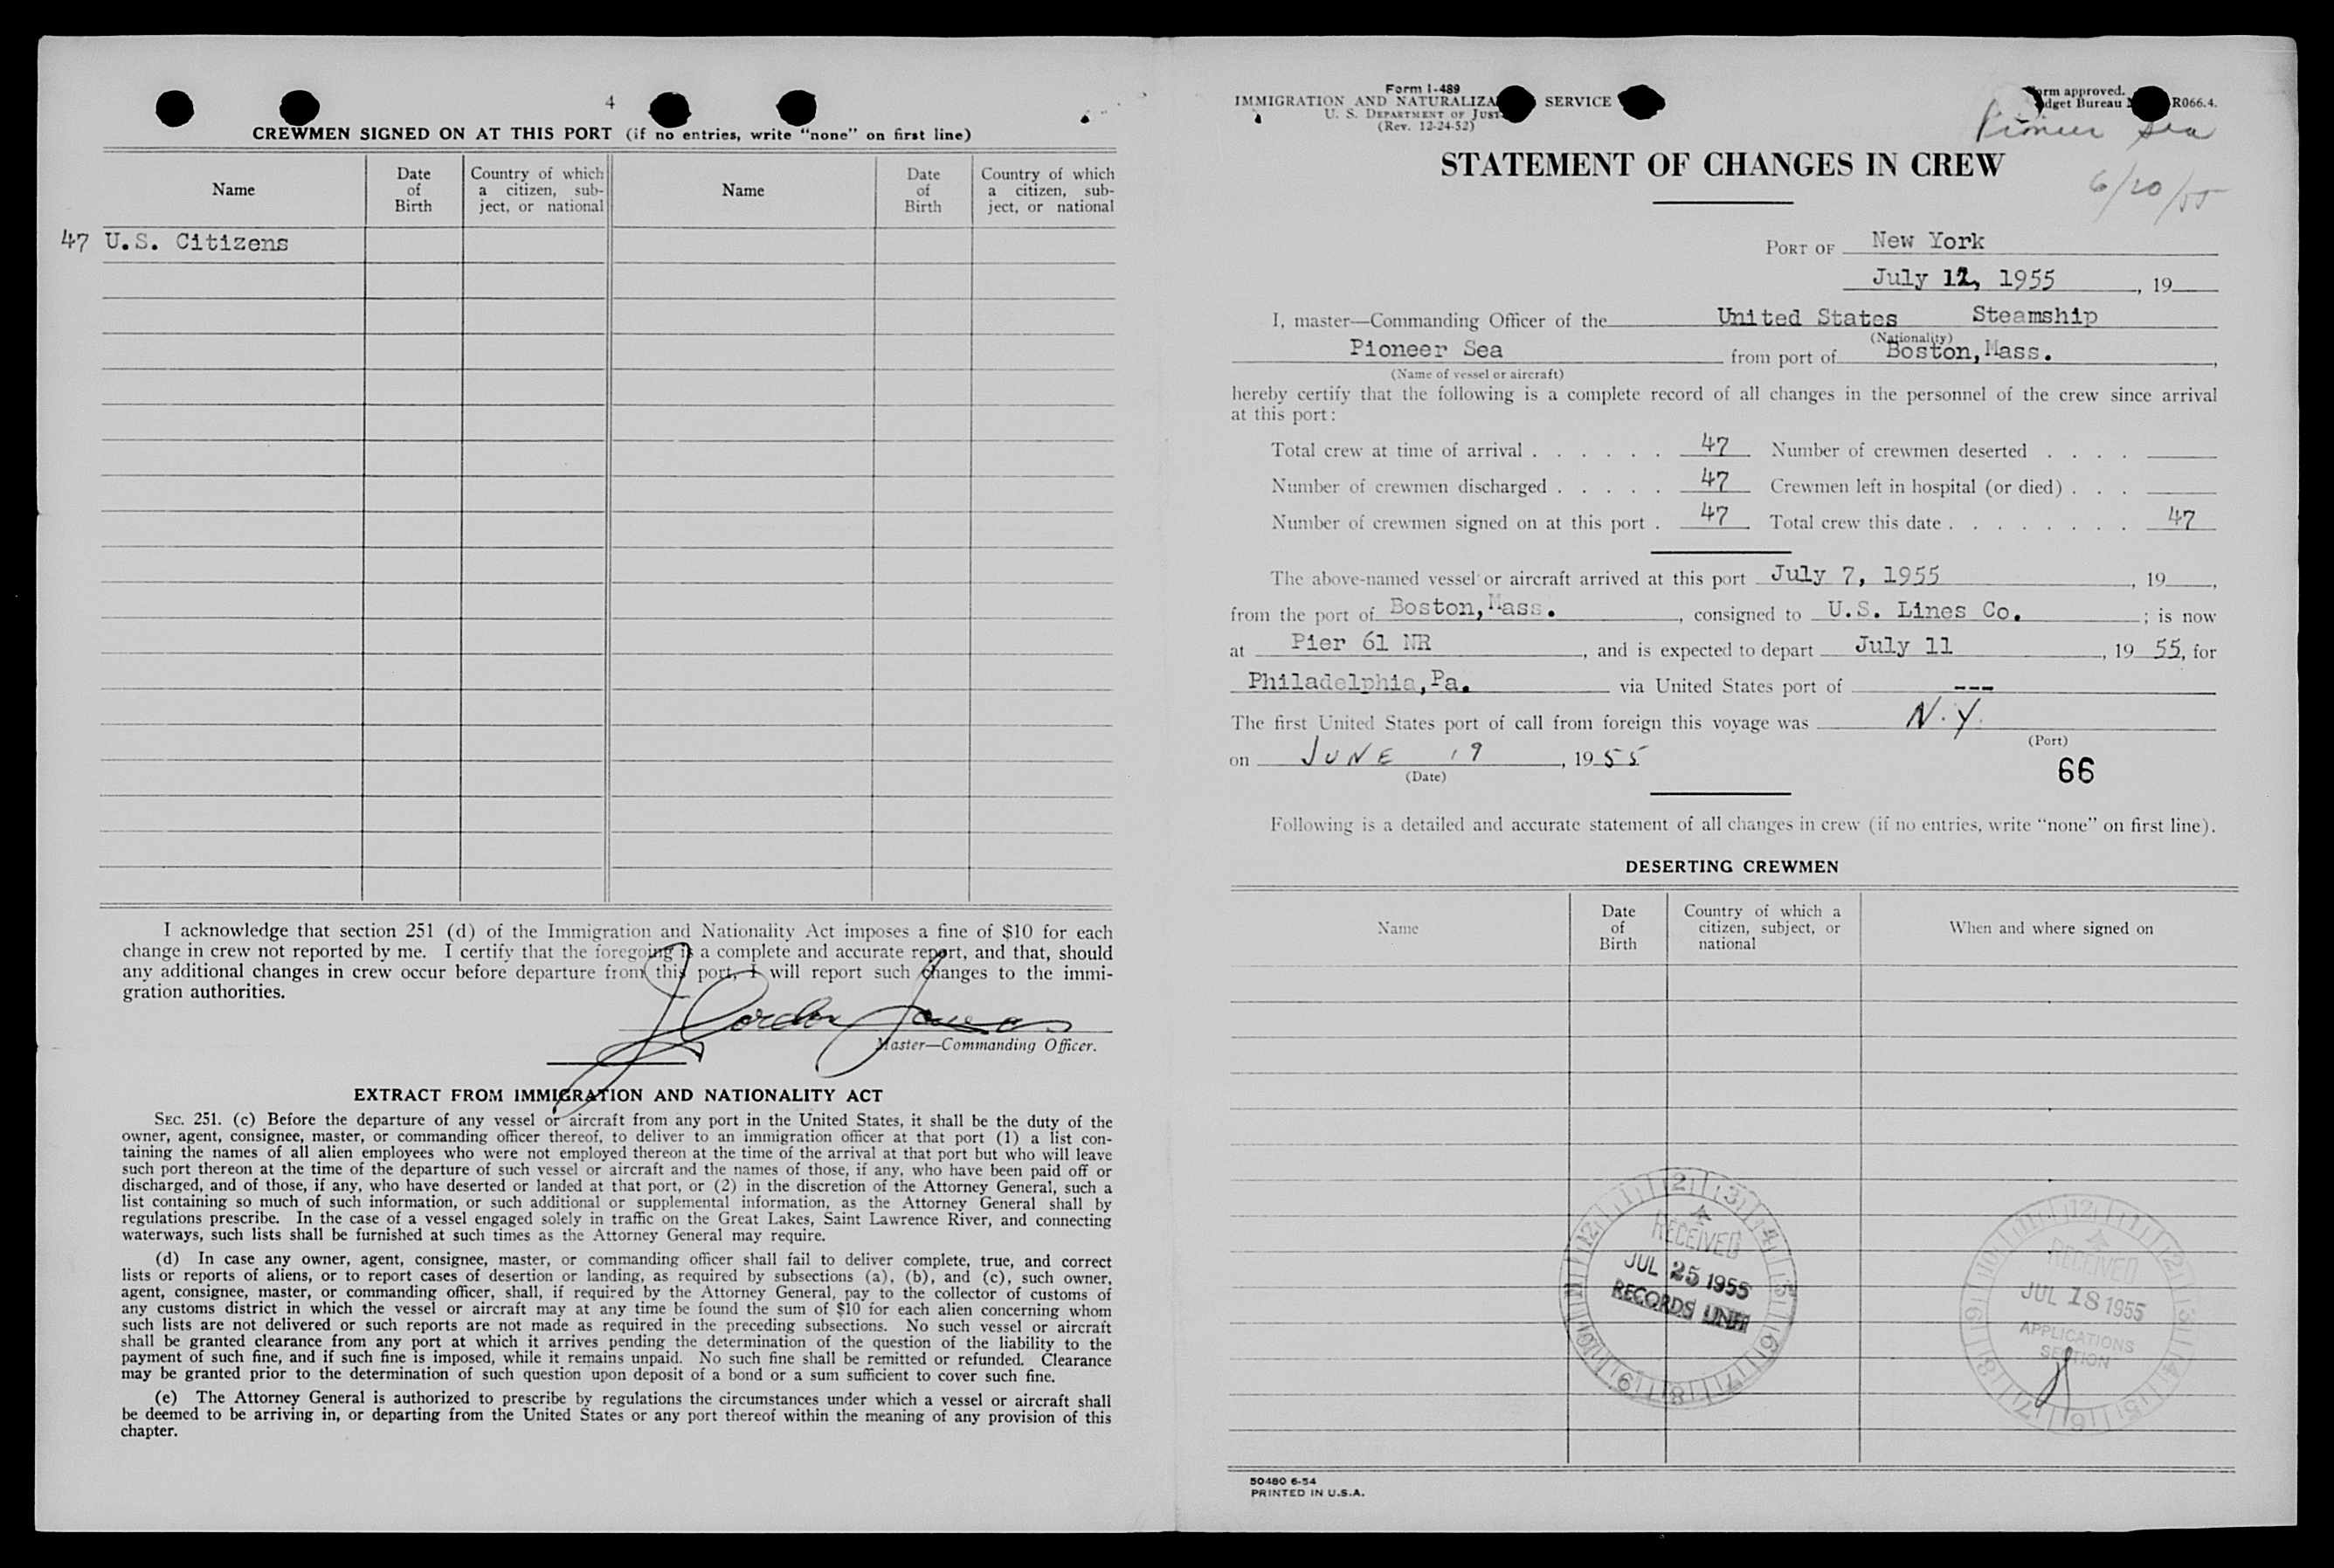 4
CREWMEN SIGNED ON AT THIS PORT (if no entries, write “none” on first line)
Name | Date of Birth | Country of which a citizen, sub-ject, or national | Name | Date of Birth | Country of which a citizen, sub-ject, or national
47 U.S. Citizens
I acknowledge that section 251 (d) of the Immigration and Nationality Act imposes a fine of $10 for each
change in crew not reported by me. I certify that the foregoing is a complete and accurate report, and that, should
any additional changes in crew occur before departure from this port, I will report such changes to the immi-
gration authorities.
J Gordon
Master—Commanding Officer.
EXTRACT FROM IMMIGRATION AND NATIONALITY ACT
SEC. 251. (c) Before the departure of any vessel or aircraft from any port in the United States, it shall be the duty of the
owner, agent, consignee, master, or commanding officer thereof, to deliver to an immigration officer at that port (1) a list con-
taining the names of all alien employees who were not employed thereon at the time of the arrival at that port but who will leave
such port thereon at the time of the departure of such vessel or aircraft and the names of those, if any, who have been paid off or
discharged, and of those, if any, who have deserted or landed at that port, or (2) in the discretion of the Attorney General, such a
list containing so much of such information, or such additional or supplemental information, as the Attorney General shall by
regulations prescribe. In the case of a vessel engaged solely in traffic on the Great Lakes, Saint Lawrence River, and connecting
waterways, such lists shall be furnished at such times as the Attorney General may require.
(d) In case any owner, agent, consignee, master, or commanding officer shall fail to deliver complete, true, and correct
lists or reports of aliens, or to report cases of desertion or landing, as required by subsections (a), (b), and (c), such owner,
agent, consignee, master, or commanding officer, shall, if required by the Attorney General, pay to the collector of customs of
any customs district in which the vessel or aircraft may at any time be found the sum of $10 for each alien concerning whom
such lists are not delivered or such reports are not made as required in the preceding subsections. No such vessel or aircraft
shall be granted clearance from any port at which it arrives pending the determination of the question of the liability to the
payment of such fine, and if such fine is imposed, while it remains unpaid. No such fine shall be remitted or refunded. Clearance
may be granted prior to the determination of such question upon deposit of a bond or a sum sufficient to cover such fine.
(e) The Attorney General is authorized to prescribe by regulations the circumstances under which a vessel or aircraft shall
be deemed to be arriving in, or departing from the United States or any port thereof within the meaning of any provision of this
chapter.
Form I-489
IMMIGRATION AND NATURALIZA SERVICE
U. S. DEPARTMENT OF JUST
(Rev. 12-24-52)
orm approved.
dget Bureau R066.4.
Pioneer Sea
6/20/55
STATEMENT OF CHANGES IN CREW
PORT OF New York
July 12, 1955, 19
I, master—Commanding Officer of the United States Steamship
(Nationality)
Pioneer Sea from port of Boston, Mass.,
(Name of vessel or aircraft)
hereby certify that the following is a complete record of all changes in the personnel of the crew since arrival
at this port:
Total crew at time of arrival . . . . . . 47 Number of crewmen deserted . . . .
Number of crewmen discharged . . . . . 47 Crewmen left in hospital (or died) . . .
Number of crewmen signed on at this port . 47 Total crew this date . . . . . . . . 47
The above-named vessel or aircraft arrived at this port July 7, 1955, 19,
from the port of Boston, Mass., consigned to U.S. Lines Co.; is now
at Pier 61 NR, and is expected to depart July 11, 19 55, for
Philadelphia, Pa. via United States port of ---
The first United States port of call from foreign this voyage was N.Y.
(Port)
on JUNE 19, 19 55
(Date)
66
Following is a detailed and accurate statement of all changes in crew (if no entries, write “none” on first line).
DESERTING CREWMEN
Name | Date of Birth | Country of which a citizen, subject, or national | When and where signed on
RECEIVED
JUL 25 1955
RECORDS UNIT
RECEIVED
JUL 18 1955
APPLICATIONS
SECTION
50480 6-54
PRINTED IN U.S.A.